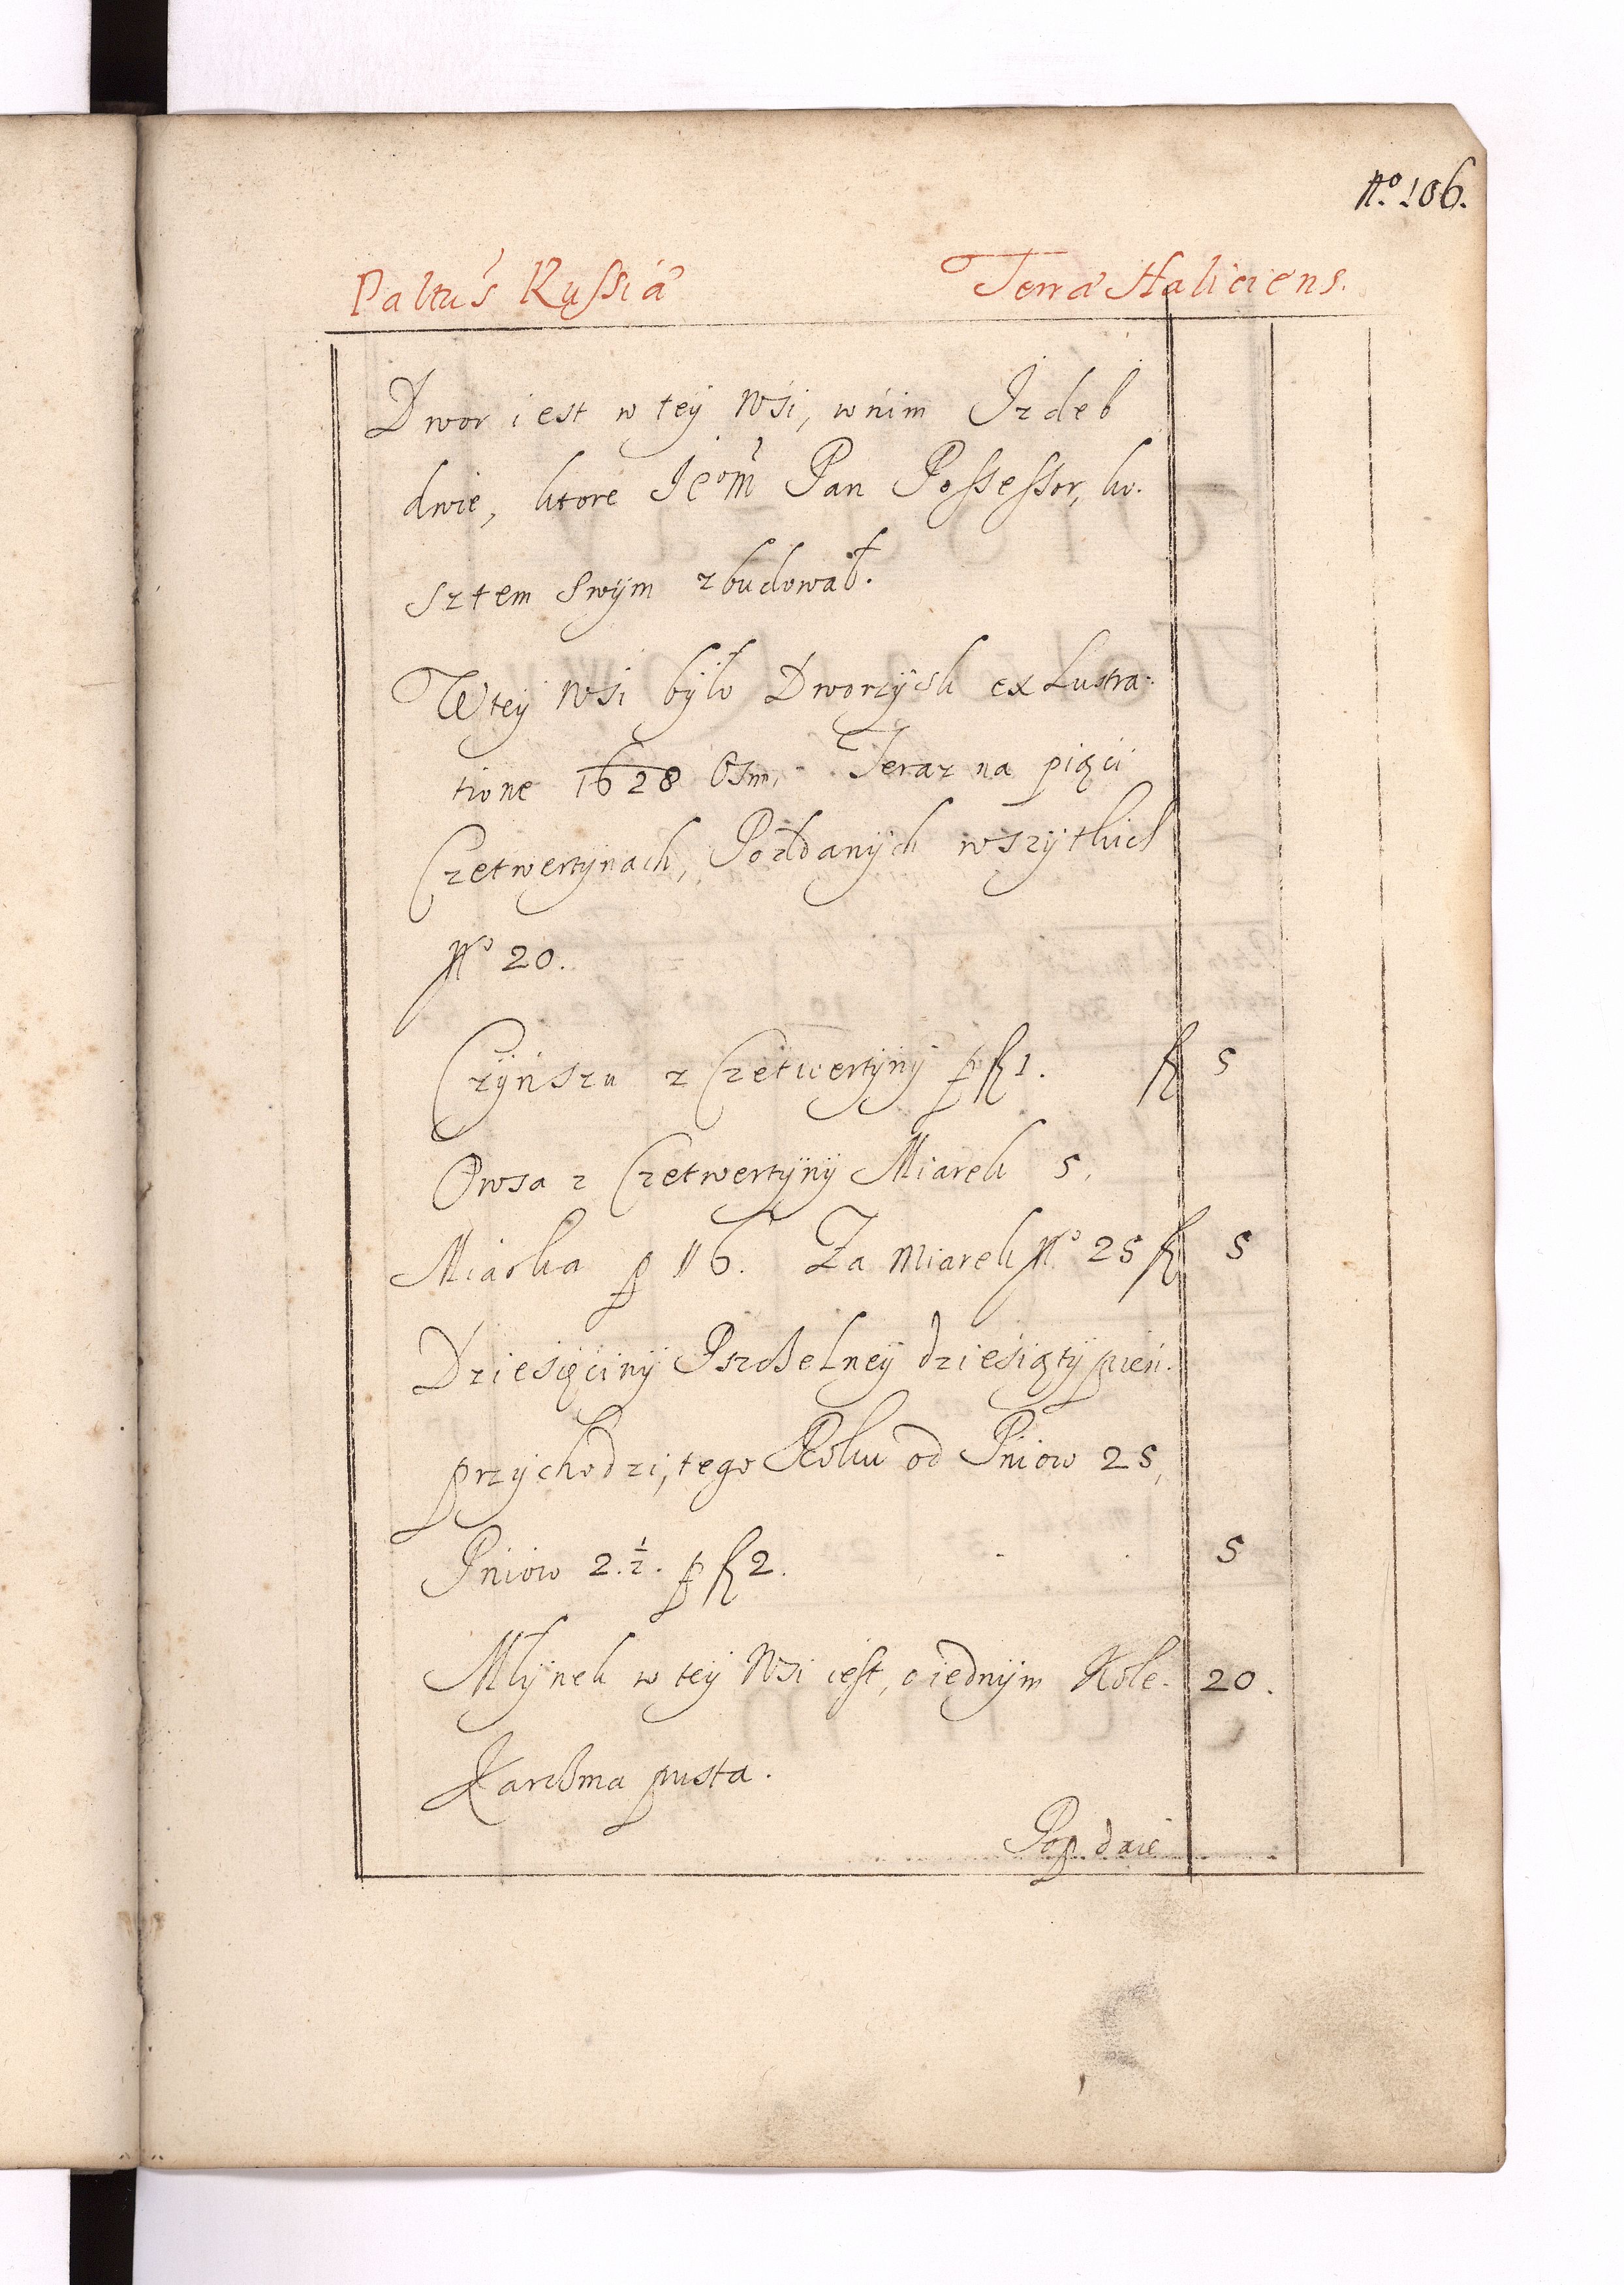 No. 106.
Paltus Russiæ Terræ Haliciens.
Dwor iest w tey Wsi, w nim Izdeb
dwie, ktore Jeom Pan Possessor, ko-
sztem swym zbudował.
W tey Wsi było Dworzysk ex Lustra-
tione 1628 Osm. Teraz na piąci
Czetwertynach, Poddanych wszytkich
No 20.
Czynszu z Czetwertyny p fl 1. fl 5
Owsa z Czetwertyny Miarek 5.
Miarka p 116. Za Miarek No 25 fl 5
Dziesięciny Pszczelney dziesiąty pień.
przychodzi, tego Roku od Pniow 25,
Pniow 2. ½. p fl 2. 5
Młynek w tey Wsi iest, o iednym Kole. 20.
Karczma pusta.
Pop daie